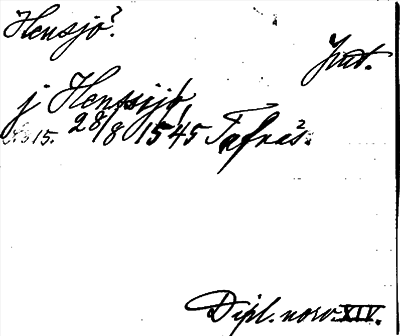 Hensjo?
Jmt.
j Henssijo
No 15. 28/8 1545 Tafnäs.
Dipl. norv. XIV.